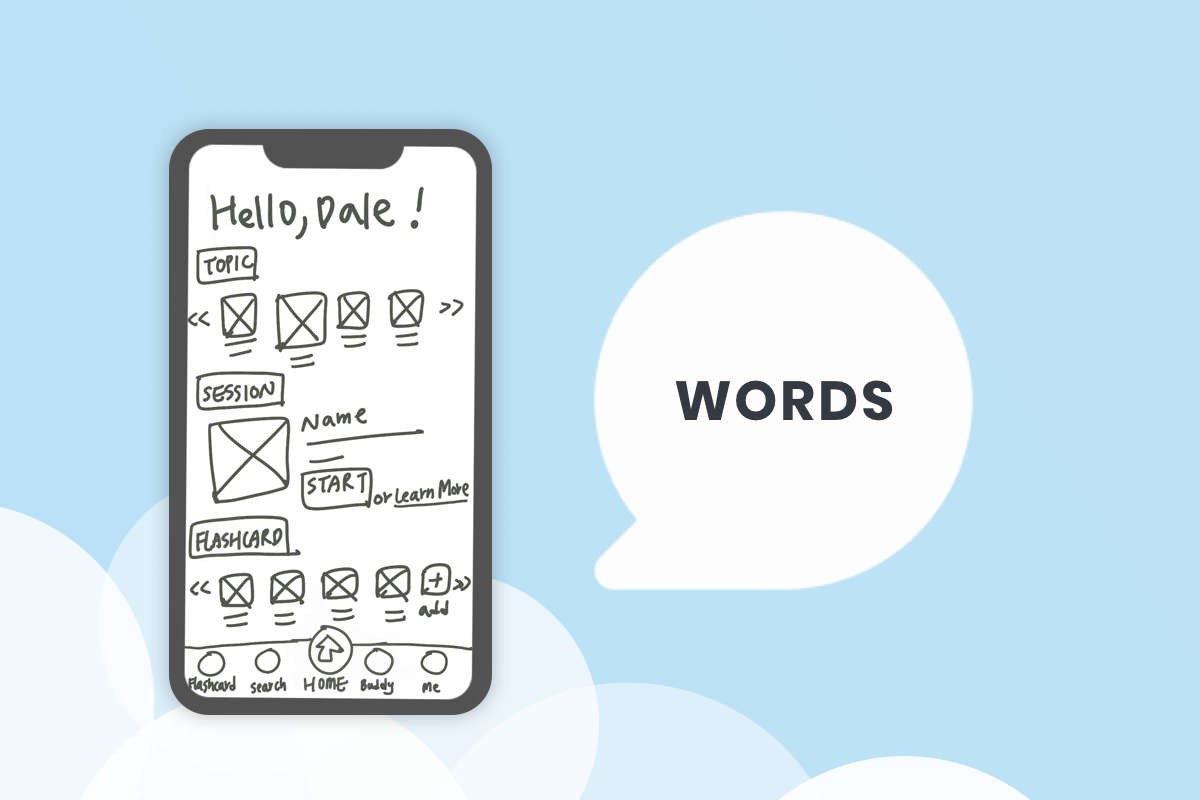 Hello, Dale !
TOPIC
<< >>
SESSION
Name
START or Learn More
FLASHCARD
<< + >>
add
Flashcard search HOME Buddy Me
WORDS